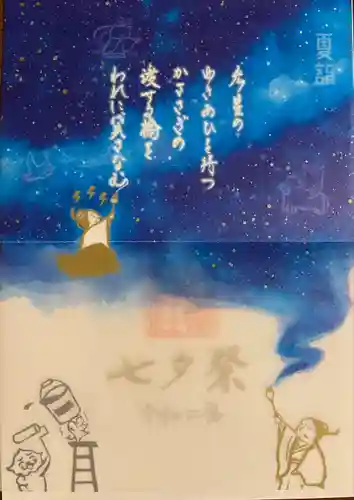 夏詣
彦星の
ゆきあひを待つ
かささぎの
渡せる橋を
われにかさなむ
七夕祭
令和二年